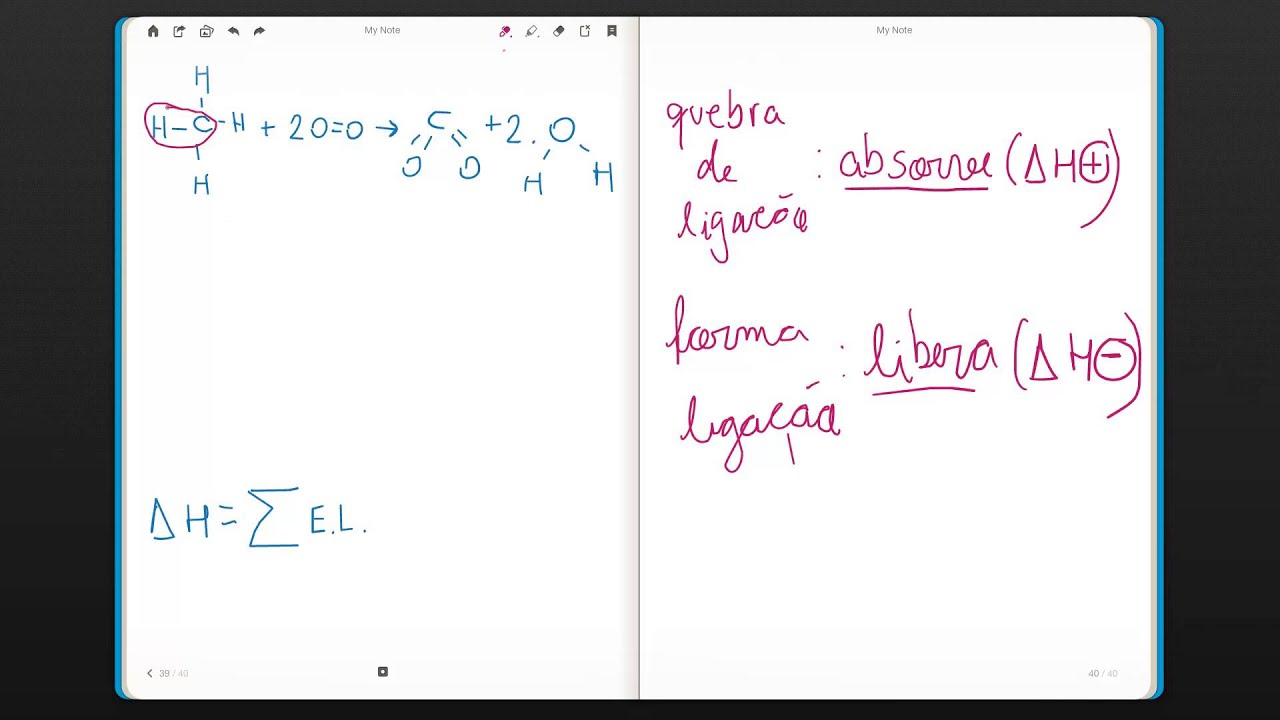 My Note
H
H-C-H + 2O=O → C + 2. O
O O H H
H
ΔH = Σ E.L.
39 / 40
My Note
quebra
de : absorve (ΔH⊕)
ligação
forma : libera (ΔH⊖)
ligação
40 / 40